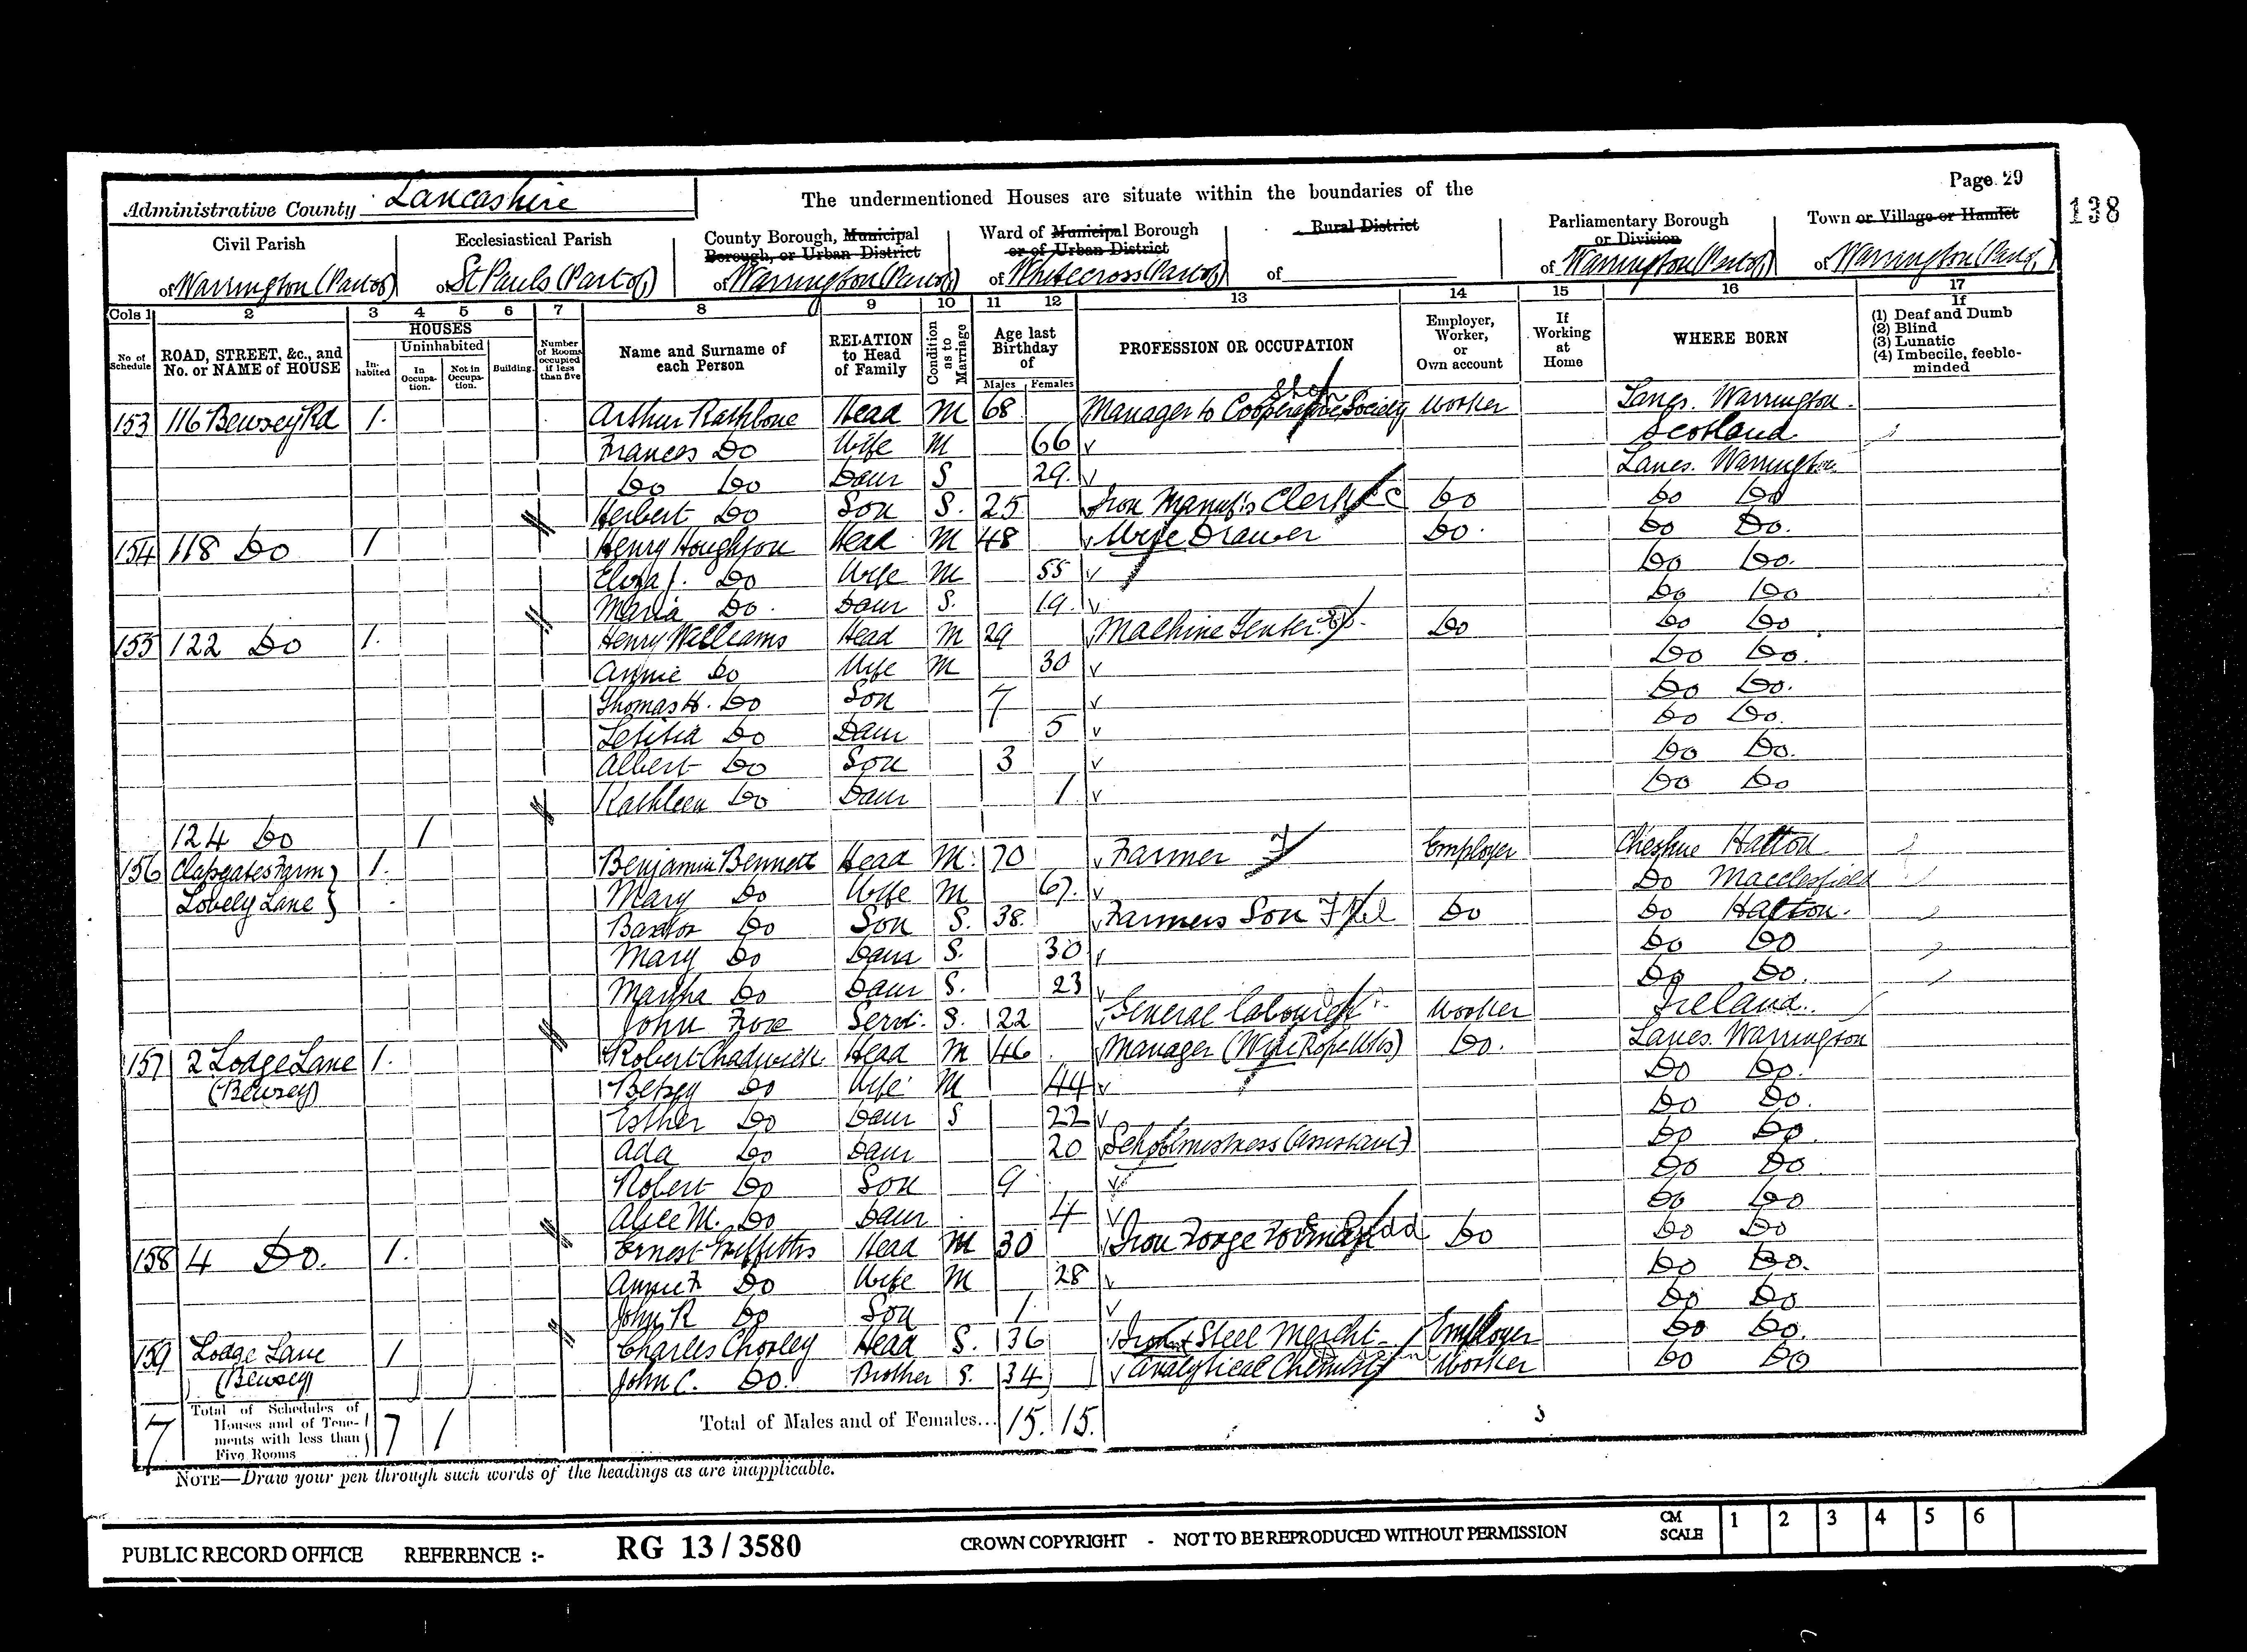 Page 29
138
Administrative County Lancashire
The undermentioned Houses are situate within the boundaries of the
Civil Parish of Warrington (Part of)
Ecclesiastical Parish of St Pauls (Part of)
County Borough, Municipal Borough, or Urban District of Warrington (Part of)
Ward of Municipal Borough or of Urban District of Whitecross (Part of)
Rural District of
Parliamentary Borough or Division of Warrington (Part of)
Town or Village or Hamlet of Warrington (Part of)
Cols 1 2 3 4 5 6 7 8 9 10 11 12 13 14 15 16 17
No of Schedule
ROAD, STREET, &c., and No. or NAME of HOUSE
HOUSES
Inhabited
Uninhabited
In Occupation.
Not in Occupation.
Building.
Number of Rooms occupied if less than five
Name and Surname of each Person
RELATION to Head of Family
Condition as to Marriage
Age last Birthday of
Males Females
PROFESSION OR OCCUPATION
Employer, Worker, or Own account
If Working at Home
WHERE BORN
If
(1) Deaf and Dumb
(2) Blind
(3) Lunatic
(4) Imbecile, feeble-minded
153 116 Bewsey Rd 1. Arthur Rathbone Head M 68 Manager to Cooperative Society Shop Worker Lancs. Warrington
Frances Do Wife M 66 Scotland
Do Do Daur S 29. Lancs. Warrington
Herbert Do Son S. 25 Iron Manuf's Clerk CC Do Do Do
154 118 Do 1 Henry Houghton Head M 48 Wire Drawer Do. Do Do.
Eliza J. Do Wife M 55 Do Do.
Maria Do. Daur S. 19. Do Do
155 122 Do 1. Henry Williams Head M 29 Machine Tenter Do Do Do
Annie Do Wife M 30 Do Do.
Thomas H. Do Son 7 Do Do.
Letitia Do Daur 5 Do Do.
Albert Do Son 3 Do Do.
Kathleen Do Daur 1 Do Do
124 Do 1
156 Clapgates Farm 1. Benjamin Bennett Head M. 70 Farmer Employer Cheshire Hatton
Lovely Lane Mary Do Wife M 67. Do Macclesfield
Do Son S. 38. Farmers Son Do Do Hatton.
Mary Do Daur S. 30 Do Do
Martha Do Daur S. 23 Do Do.
John Servt. S. 22 General labourer Worker Ireland.
157 2 Lodge Lane 1. Robert Chadwick Head M 46 Manager (Wire Rope Wks) Do. Lancs. Warrington
(Bewsey) Betsy Do Wife M 44 Do Do.
Esther Do Daur S 22 Do Do.
Ada Do Daur 20 Schoolmistress (Assistant) Do Do.
Robert Do Son 9 Do Do
Alice M. Do Daur 4 Do Do
158 4 Do. 1. Ernest Griffiths Head M 30 Iron Forge Do Do Do
Annie F. Do Wife M 28 Do Do.
John R Do Son 1. Do Do
159 Lodge Lane 1 Charles Chorley Head S. 36 Iron & Steel Mercht Employer Do Do.
(Bewsey) John C. Do. Brother S. 34 Analytical Chemist Worker Do Do
7 Total of Schedules of Houses and of Tenements with less than Five Rooms 7 1 Total of Males and of Females... 15. 15.
NOTE—Draw your pen through such words of the headings as are inapplicable.
PUBLIC RECORD OFFICE REFERENCE :- RG 13 / 3580 CROWN COPYRIGHT - NOT TO BE REPRODUCED WITHOUT PERMISSION CM SCALE 1 2 3 4 5 6